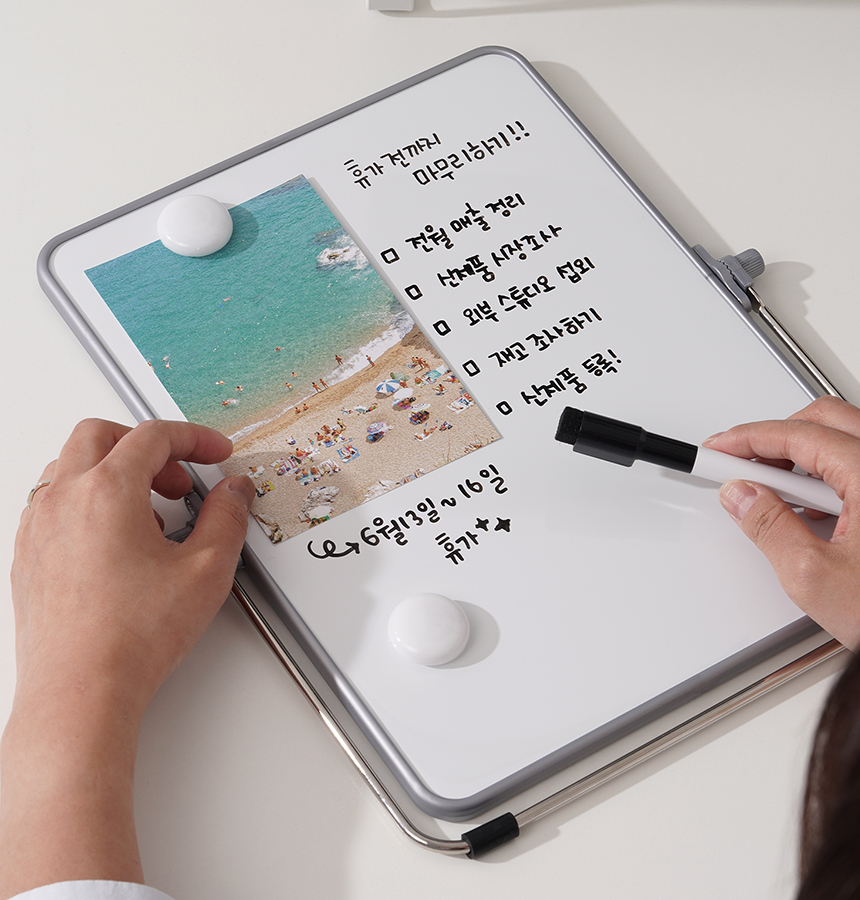 휴가 전까지
마무리하기!!
□ 전월 매출 정리
□ 신제품 시장조사
□ 외부 스튜디오 섭외
□ 재고 조사하기
□ 신제품 등록!
6월13일~16일
휴가